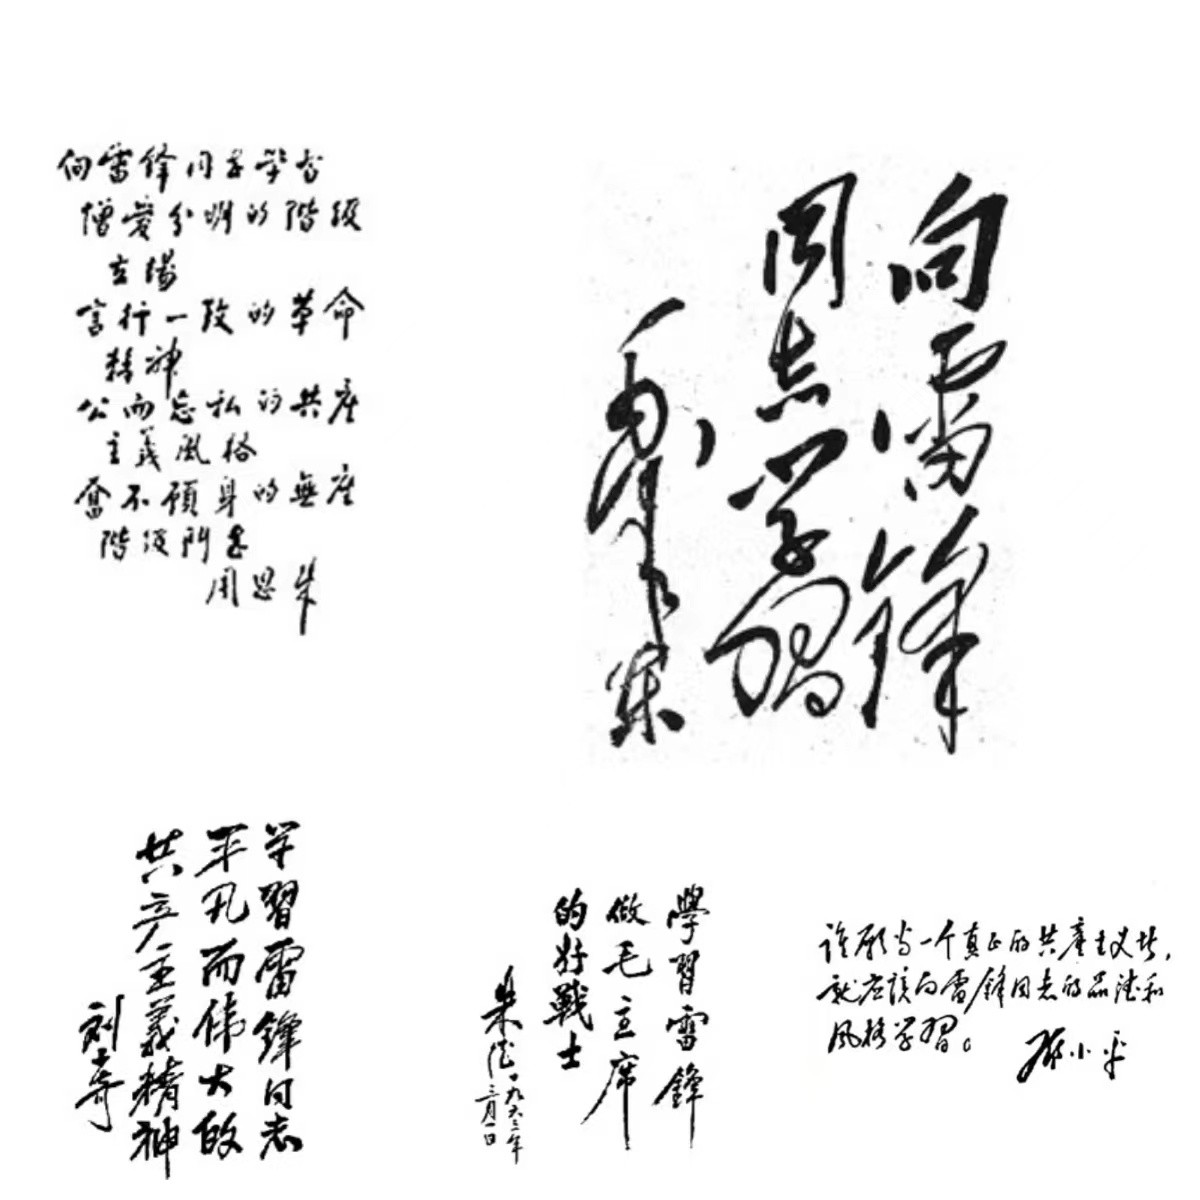 向雷鋒同志學習
憎愛分明的階級
立場
言行一致的革命
精神
公而忘私的共產
主義風格
奮不顧身的無產
階級鬥志
周恩来
向雷锋
同志学习
毛泽东
学習雷鋒同志
平凡而伟大的
共产主義精神
刘少奇
學習雷鋒
做毛主席
的好戰士
朱德 一九六三年
三月一日
谁愿当一个真正的共產主义者，
就应该向雷锋同志的品德和
风格学習。
邓小平